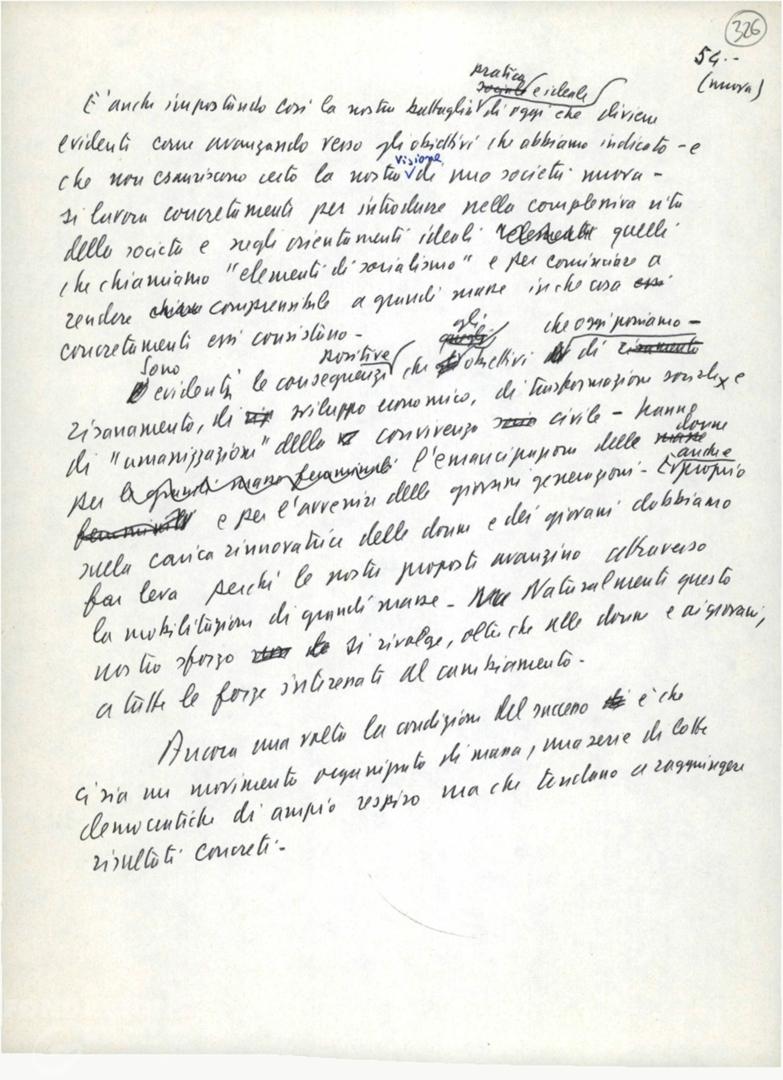 326
54--
(nuova)
pratica
sociale e ideale
E' anche impostando così la nostra battaglia di oggi che diviene
evidente come avanzando verso gli obiettivi che abbiamo indicato - e
visione
che non esauriscono certo la nostra di una società nuova -
si lavora concretamente per introdurre nella complessiva vita
della società e negli orientamenti ideali elementi quelli
che chiamiamo "elementi di socialismo" e per cominciare a
rendere chiaro comprensibile a grandi masse in che cosa essi
concretamente essi consistano -
gli
che oggi poniamo -
Sono
positive
questi
evidenti le conseguenze che obiettivi di di risanamento
risanamento, di sviluppo economico, di trasformazione sociale e
di "umanizzazione" della convivenza civile - hanno
donne
per le grandi masse femminili l'emancipazione delle masse
anche
femminili e per l'avvenire delle giovani generazioni - E' proprio
sulla carica rinnovatrice delle donne e dei giovani dobbiamo
far leva perché le nostre proposte avanzino attraverso
la mobilitazione di grandi masse - Ma Naturalmente questo
nostro sforzo si rivolge, oltre che alle donne e ai giovani,
a tutte le forze interessate al cambiamento -
Ancora una volta la condizione del successo è che
ci sia un movimento organizzato di massa, una serie di lotte
democratiche di ampio respiro ma che tendano a raggiungere
risultati concreti -